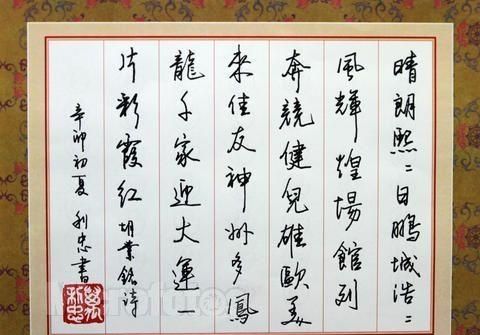 晴朗熙〻日鵬城浩〻
風輝煌場館列
奔競健兒雄歐美
来佳友神州多鳳
龍千家迎大運一
片彩霞紅 胡業銘詩
辛卯初夏 利忠書